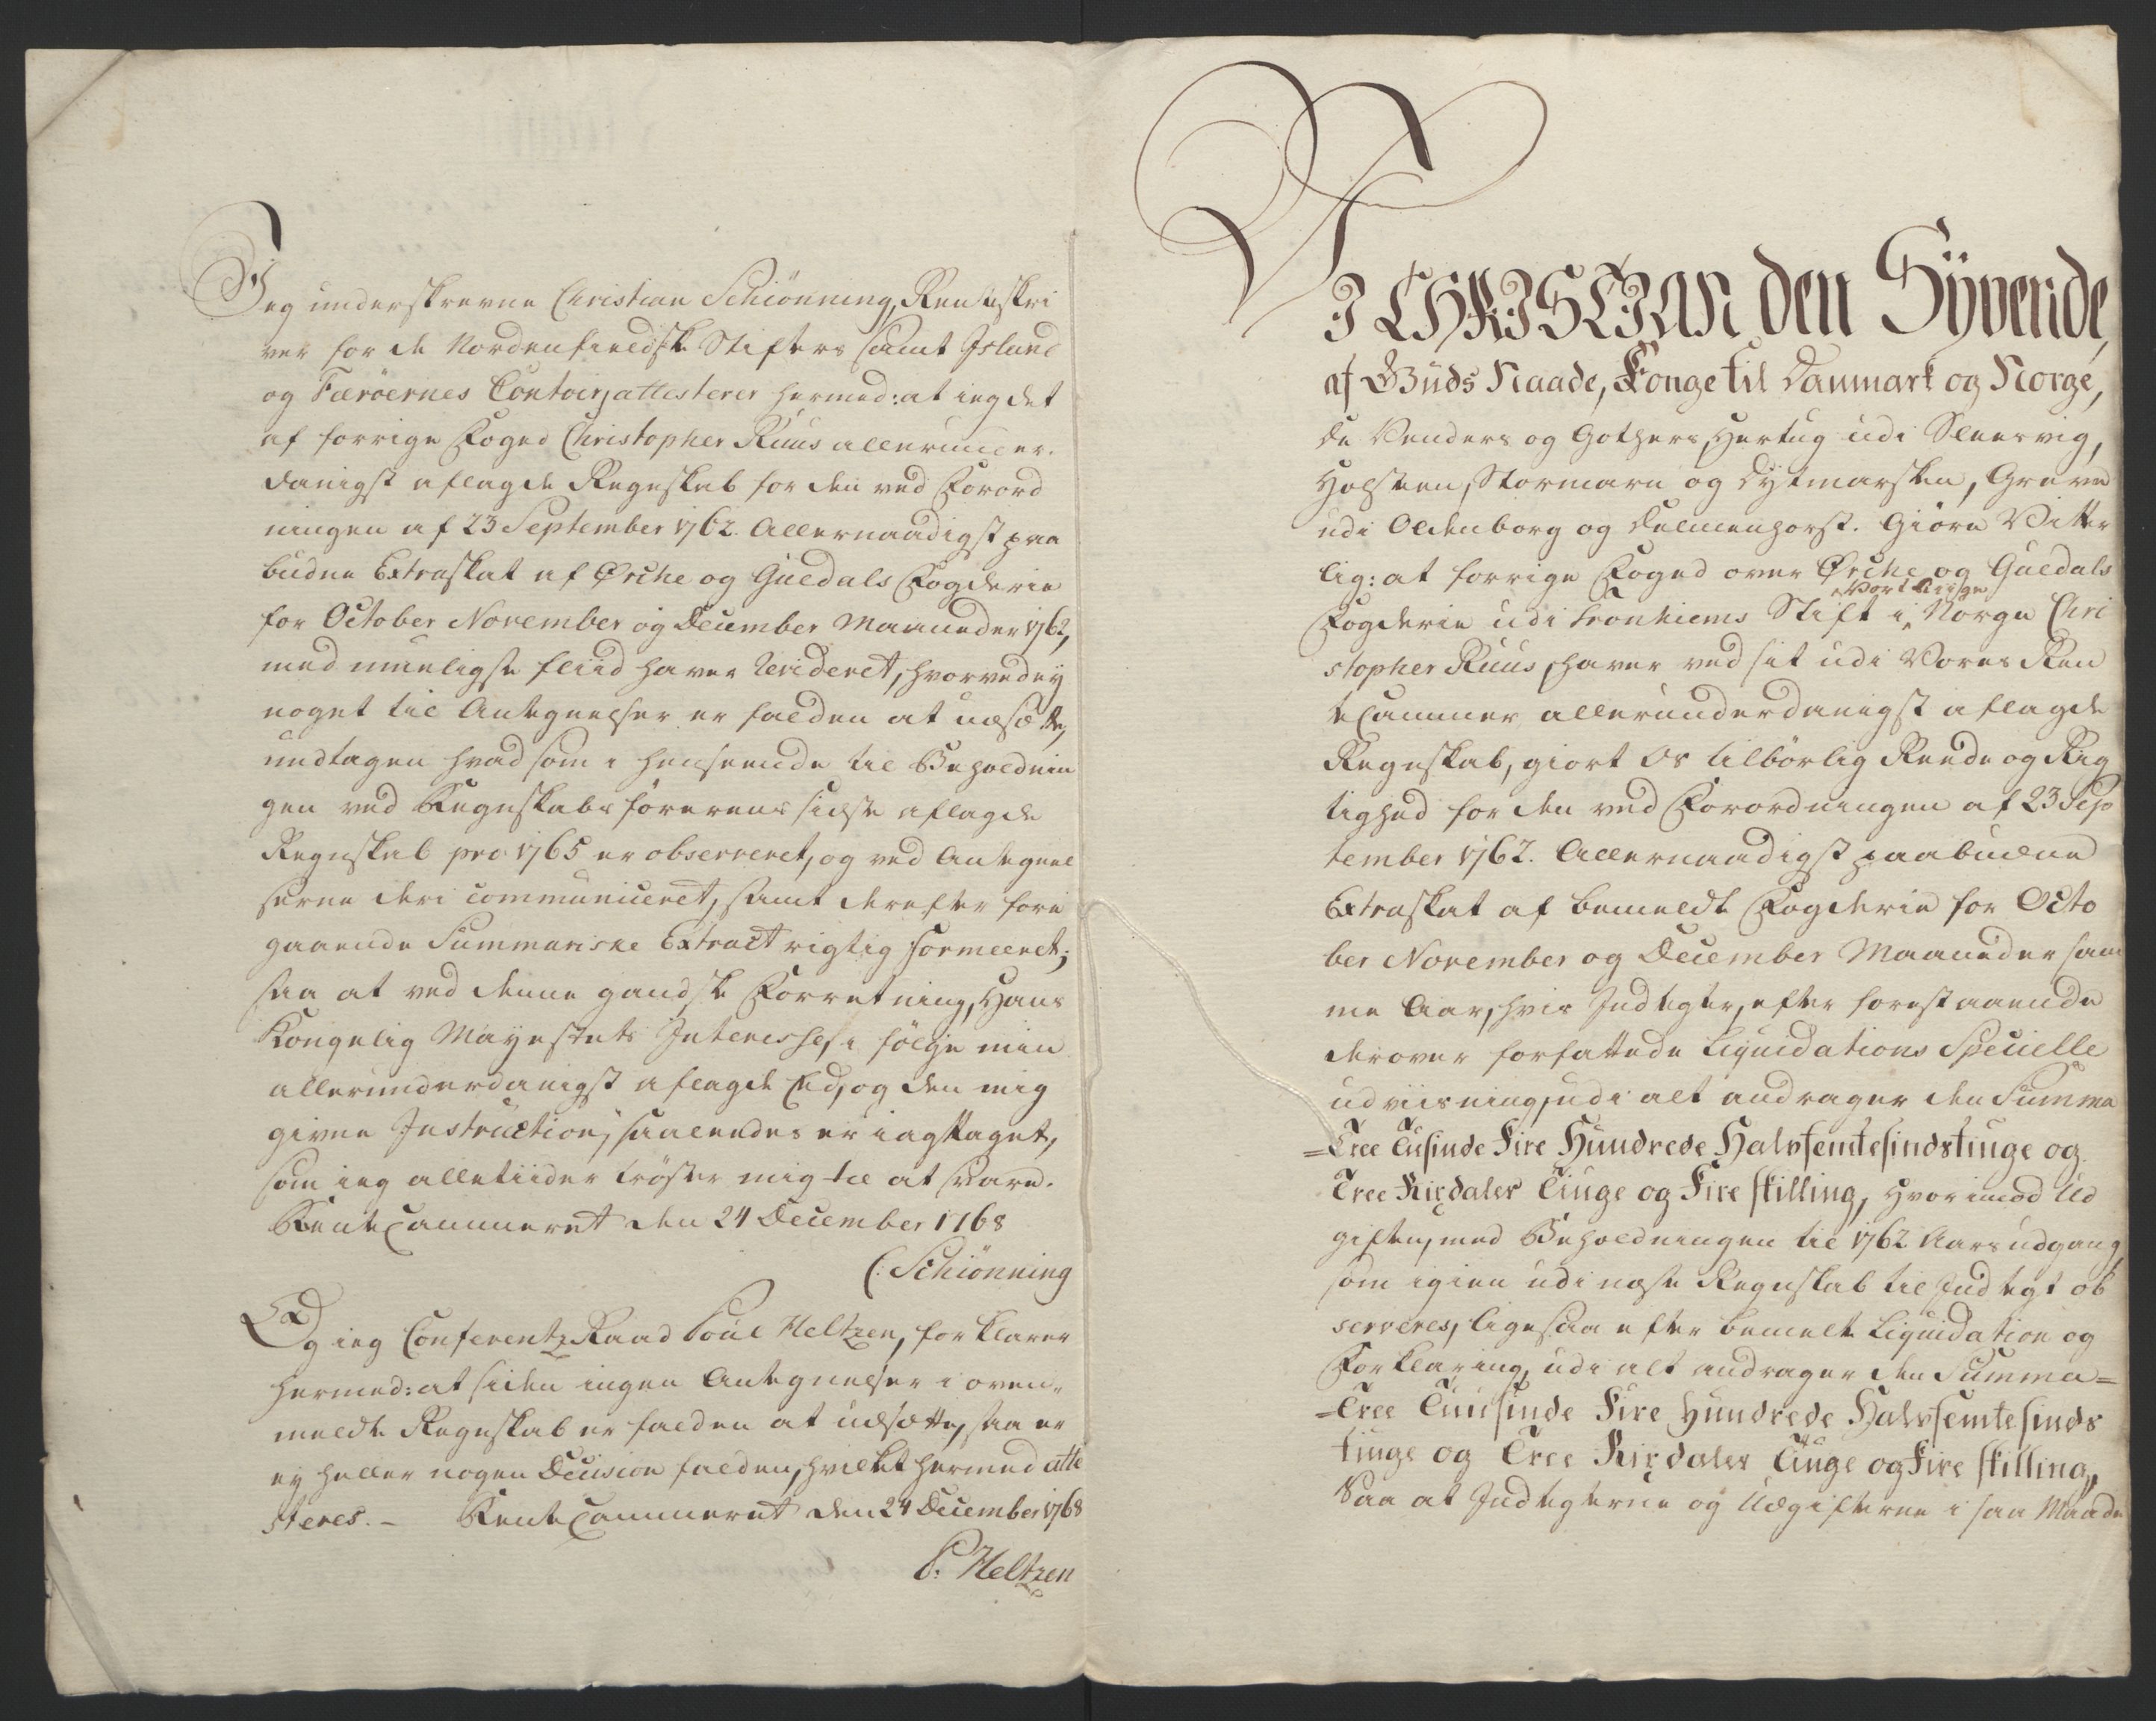 Jeg underskrevne Christian Schiönning, Renteskri
ver for de Nordenfieldske Stifters samt Island
og Færöernes Contoir, attesterer hermed: at ieg det
af forrige Foged Christopher Ruus allerunder-
danigst aflagde Regnskab for den ved Forord
ningen af 23 September 1762. Allernaadigst paa
budne Extraskat af Ørche og Guldals Fogderie
for October November og December Maaneder 1762,
med mueligste fliid haver Revideret, hvorved ey
noget til Antegnelser er falden at udsætte,
undtagen hvad som i henseende til Beholdnin
gen ved Regnskabsförerens sidste aflagde
Regnskab pro 1765 er observeret, og ved Antegnel
serne deri communiceret, samt derefter fore
gaaende Summariske Extract rigtig formeeret;
saa at ved denne gandske Forretning, Hans
Kongelig Mayestets Interesse, i følge min
allerunderdanigst aflagde Eed, og den mig
givne Instruction, saaledes er iagttaget,
som ieg alletiider tröster mig til at svare.
RenteCammeret den 24 December 1768
C: Schiönning
Og ieg ConferentzRaad Poul Heltzen, forklarer
hermed: at siden ingen Antegnelser i oven-
meldte Regnskab er falden at udsætte, saa er
ey heller nogen Decision falden, hvilket hermed atte
steres. - RenteCammeret den 24 December 1768
P: Heltzen
VI CHRISTIAN den Syvende,
af Guds Naade, Konge til Danmark og Norge,
de Venders og Gothers, Hertug udi Slesvig,
Holsteen, Stormarn og Dytmarsken, Greve
udi Oldenborg og Delmenhorst. Giöre Vitter
lig: at forrige Foged over Ørche og Guldals
Vort Riige
Fogderie udi Tronhiems Stift i Norge Chri
stopher Ruus, haver ved sit udi Vores Ren
teCammer allerunderdanigst aflagde
Regnskab, giort Os tilbörlig Reede og Rig
tighed for den ved Forordningen af 23 Sep
tember 1762. Allernaadigst paabudne
Extraskat af bemeldte Fogderie for Octo
ber November og December Maaneder sam
me Aar, hvis Indtegter, efter forestaaende
derover forfattede Liquidations Specielle
udviisning, udi alt andrager den Summa
=Tree Tusinde Fire Hundrede Halvfemtesindstiuge og
Tree Rixdaler Tiuge og Fire skilling, hvorimod Ud
giften, med Beholdningen til 1762 Aars udgang,
som igien udi neste Regnskab til Indtegt ob
serveres, ligesaa efter bemelte Liquidation og
Forklaring, udi alt andrager den Summa=
=Tree Tuusinde Fire Hundrede Halvfemtesinds
tiuge og Tree Rixdaler Tiuge og Fire skilling,
Saa at Indtegterne og Udgifterne i saa Maade